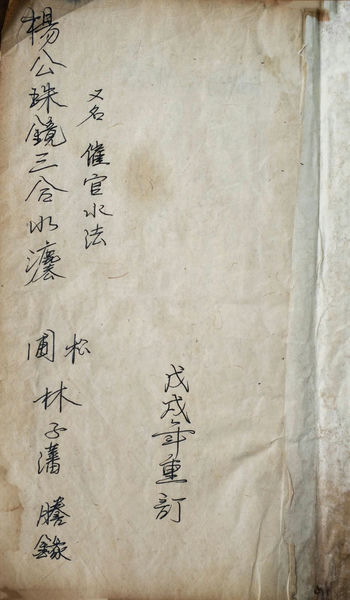 楊公珠鏡三合水灋
又名 催官水法
松圃
林子藩 謄錄
戊戌年重訂